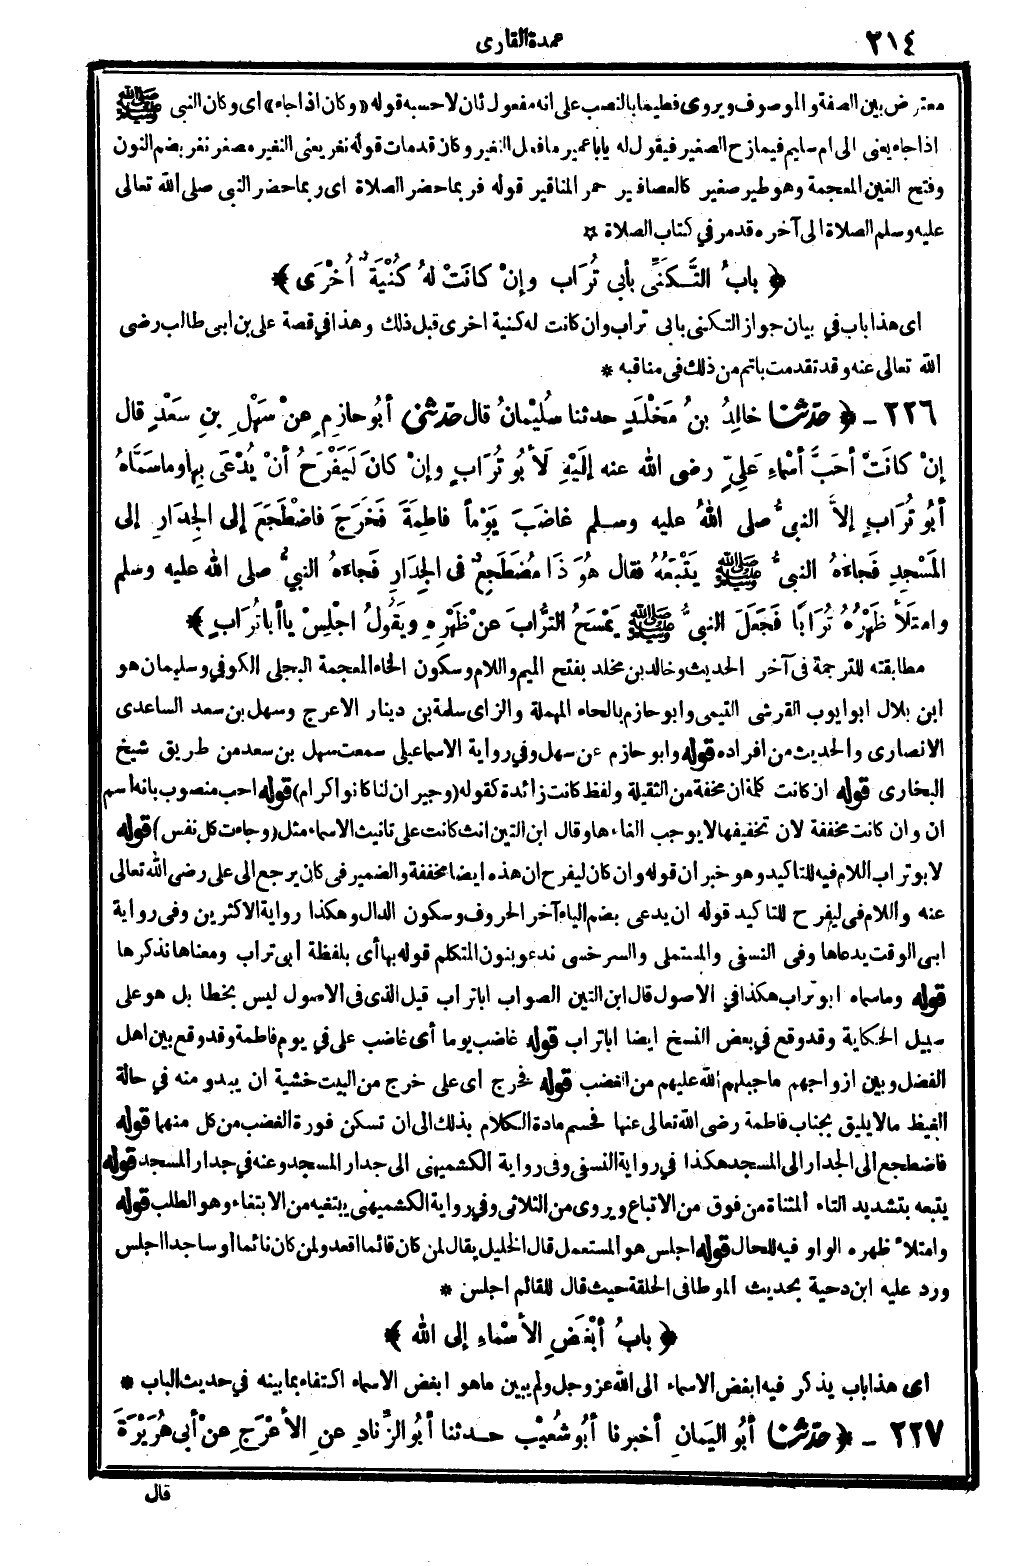 ٢١٤
عمدة القارى
معترض بين الصفة والموصوف ويروى فطيما بالنصب على انه مفعول ثان لاحسبه قوله «وكان اذا جاء» أى وكان النبى ﷺ
اذا جاء يعنى الى ام سليم فيمازح الصغير فيقول له يا با عمير ما فعل النغير وكان قد مات قوله نغر يعنى النغير مصغر نغر بضم النون
وفتح الغين المعجمة وهو طير صغير كالعصافير حمر المناقير قوله فربما حضر الصلاة اى ربما حضر النبى صلى الله تعالى
عليه وسلم الصلاة الى آخره قد مر في كتاب الصلاة ☆
﴿ بابُ التَّكَنِّي بأبي تُرَاب وإنْ كانَتْ لهُ كُنْيَةٌ أُخْرَى ﴾
اى هذا باب في بيان جواز التكنى بابى تراب وان كانت له كنية اخرى قبل ذلك وهذا في قصة على بن ابى طالب رضى
الله تعالى عنه وقد تقدمت باتم من ذلك فى مناقبه *
٢٢٦ ـ ﴿ حدّثنا خالِدُ بنُ مَخْلَدٍ حدثنا سُلَيْمانُ قال حدّثنى أبُو حازِمٍ عنْ سَهْلِ بنِ سَعْدٍ قال
إنْ كانَتْ أحَبَّ أسْماءِ عَلِيٍّ رضى الله عنه إلَيْهِ لَأَبُو تُرَابٍ وإنْ كانَ لَيَفْرَحُ أنْ يُدْعَى بِها وما سَمَّاهُ
أبُو تُرَابٍ إلاَّ النبىُّ صلى اللهُ عليه وسلم غاضَبَ يَوْماً فاطِمَةَ فَخَرَجَ فاضْطَجَعَ إلى الجِدَارِ إلى
المَسْجِدِ فَجاءَهُ النبىُّ ﷺ يَتْبَعُهُ فقال هُوَ ذَا مُضْطَجِعٌ فى الجِدَارِ فَجاءَهُ النبيُّ صلى الله عليه وسلم
وامتَلَأَ ظَهْرُهُ تُرَابًا فَجَعَلَ النبىُّ ﷺ يَمْسَحُ التُّرابَ عنْ ظَهْرِهِ ويَقُولُ اجْلِسْ يا أبا تُرَابٍ ﴾
مطابقته للترجمة فى آخر الحديث وخالد بن مخلد بفتح الميم واللام وسكون الخاء المعجمة البجلى الكوفي وسليمان هو
ابن بلال ابو ايوب القرشى التيمى وابو حازم بالحاء المهملة والزاى سلمة بن دينار الاعرج وسهل بن سعد الساعدى
الانصارى والحديث من افراده قوله وابو حازم عن سهل وفي رواية الاسماعيلى سمعت سهل بن سعد من طريق شيخ
البخارى قوله ان كانت كلمة ان مخففة من الثقيلة ولفظ كانت زائدة كقوله (وجيران لنا كانوا كرام) قوله احب منصوب بانه اسم
ان وان كانت مخففة لان تخفيفها لا يوجب الغاءها وقال ابن التين انث كانت على تانيث الاسماء مثل (وجاءت كل نفس) قوله
لابو تراب اللام فيه للتاكيد وهو خبر ان قوله وان كان ليفرح ان هذه ايضا مخففة والضمير فى كان يرجع الى على رضى الله تعالى
عنه واللام فى ليفرح للتاكيد قوله ان يدعى بضم الياء آخر الحروف وسكون الدال وهكذا رواية الاكثرين وفى رواية
ابى الوقت يدعاها وفى النسفى والمستملى والسرخسى ندعو بنون المتكلم قوله بها أى بلفظة أبى تراب ومعناها نذكرها
قوله وما سماه ابو تراب هكذا في الاصول قال ابن التين الصواب ابا تراب قيل الذى فى الاصول ليس بخطا بل هو على
سبيل الحكاية وقد وقع في بعض النسخ ايضا ابا تراب قوله غاضب يوما أى غاضب على في يوم فاطمة وقد وقع بين اهل
الفضل وبين ازواجهم ما جبلهم الله عليهم من الغضب قوله فخرج اى على خرج من البيت خشية ان يبدو منه في حالة
الغيظ ما لا يليق بجناب فاطمة رضى الله تعالى عنها فحسم مادة الكلام بذلك الى ان تسكن فورة الغضب من كل منهما قوله
فاضطجع الى الجدار الى المسجد هكذا في رواية النسفى وفى رواية الكشميهنى الى جدار المسجد وعنه في جدار المسجد قوله
يتبعه بتشديد التاء المثناة من فوق من الاتباع ويروى من الثلاثى وفي رواية الكشميهنى يبتغيه من الابتغاء وهو الطلب قوله
وامتلأ ظهره الواو فيه للحال قوله اجلس هو المستعمل قال الخليل يقال لمن كان قائما اقعد ولمن كان نائما أو ساجدا اجلس
ورد عليه ابن دحية بحديث الموطا فى الحلقة حيث قال للقائم اجلس *
﴿ بابُ أبْغَضِ الأسْماءِ إلى الله ﴾
اى هذا باب يذكر فيه ابغض الاسماء الى الله عز وجل ولم يبين ما هو ابغض الاسماء اكتفاء بما بينه في حديث الباب *
٢٢٧ ـ ﴿ حدّثنا أبُو اليَمانِ أخبرنا أبُو شُعَيْب حدثنا أبُو الزِّنادِ عنِ الأعْرَجِ عنْ أبى هُرَيْرَةَ
قال